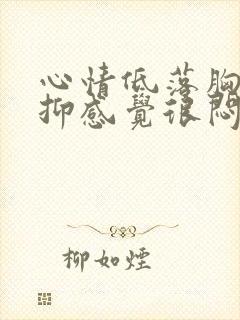 心情低落胸
抑感覺很悶
柳如煙